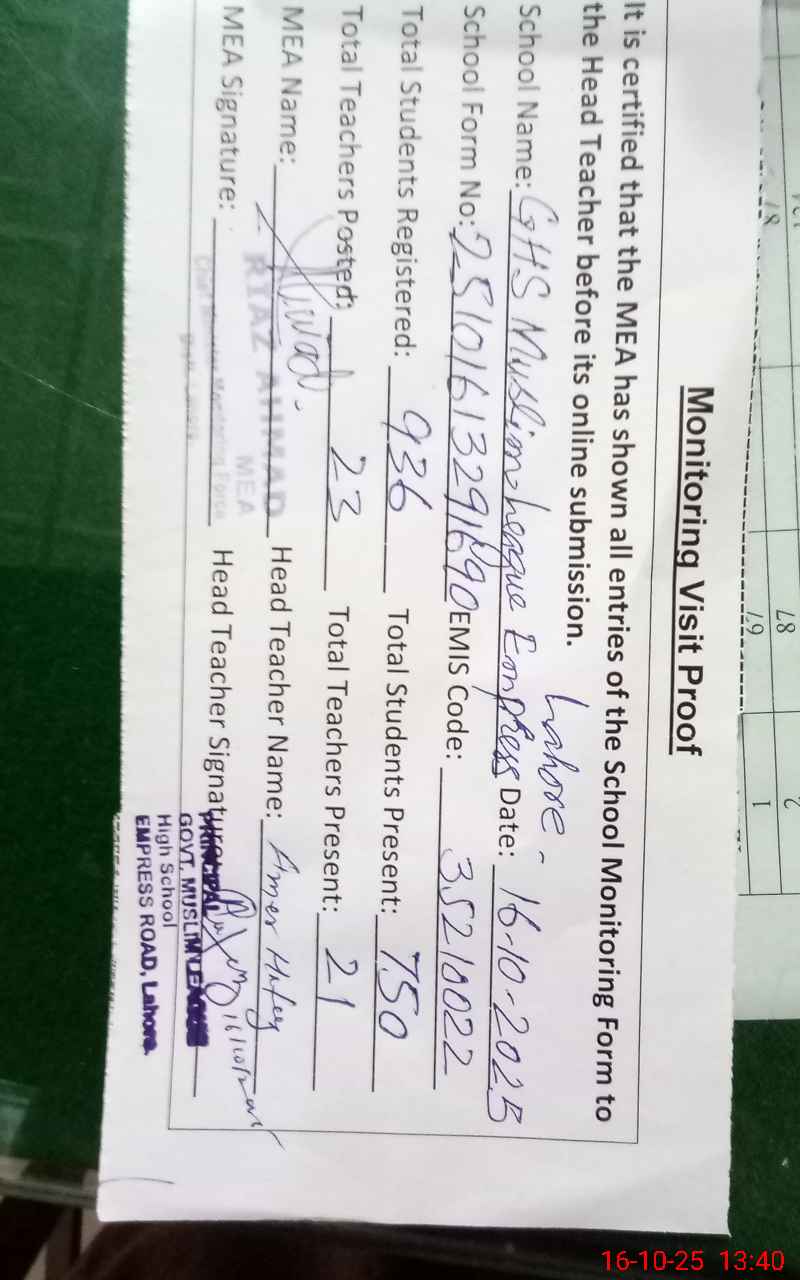 Monitoring Visit Proof
It is certified that the MEA has shown all entries of the School Monitoring Form to
the Head Teacher before its online submission.
Lahore -
School Name: GHS Muslim League Empress Date: 16-10-2025
School Form No: 25101613291690 EMIS Code: 35210022
Total Students Registered: 936 Total Students Present: 750
Total Teachers Posted: 23 Total Teachers Present: 21
MEA Name: RIAZ AHMAD Head Teacher Name: Amer
MEA
MEA Signature: Head Teacher Signature:
Monitoring Force
PRINCIPAL
GOVT. MUSLIM LEAGUE
High School
EMPRESS ROAD, Lahore.
18
87
67
2
1
16-10-25 13:40